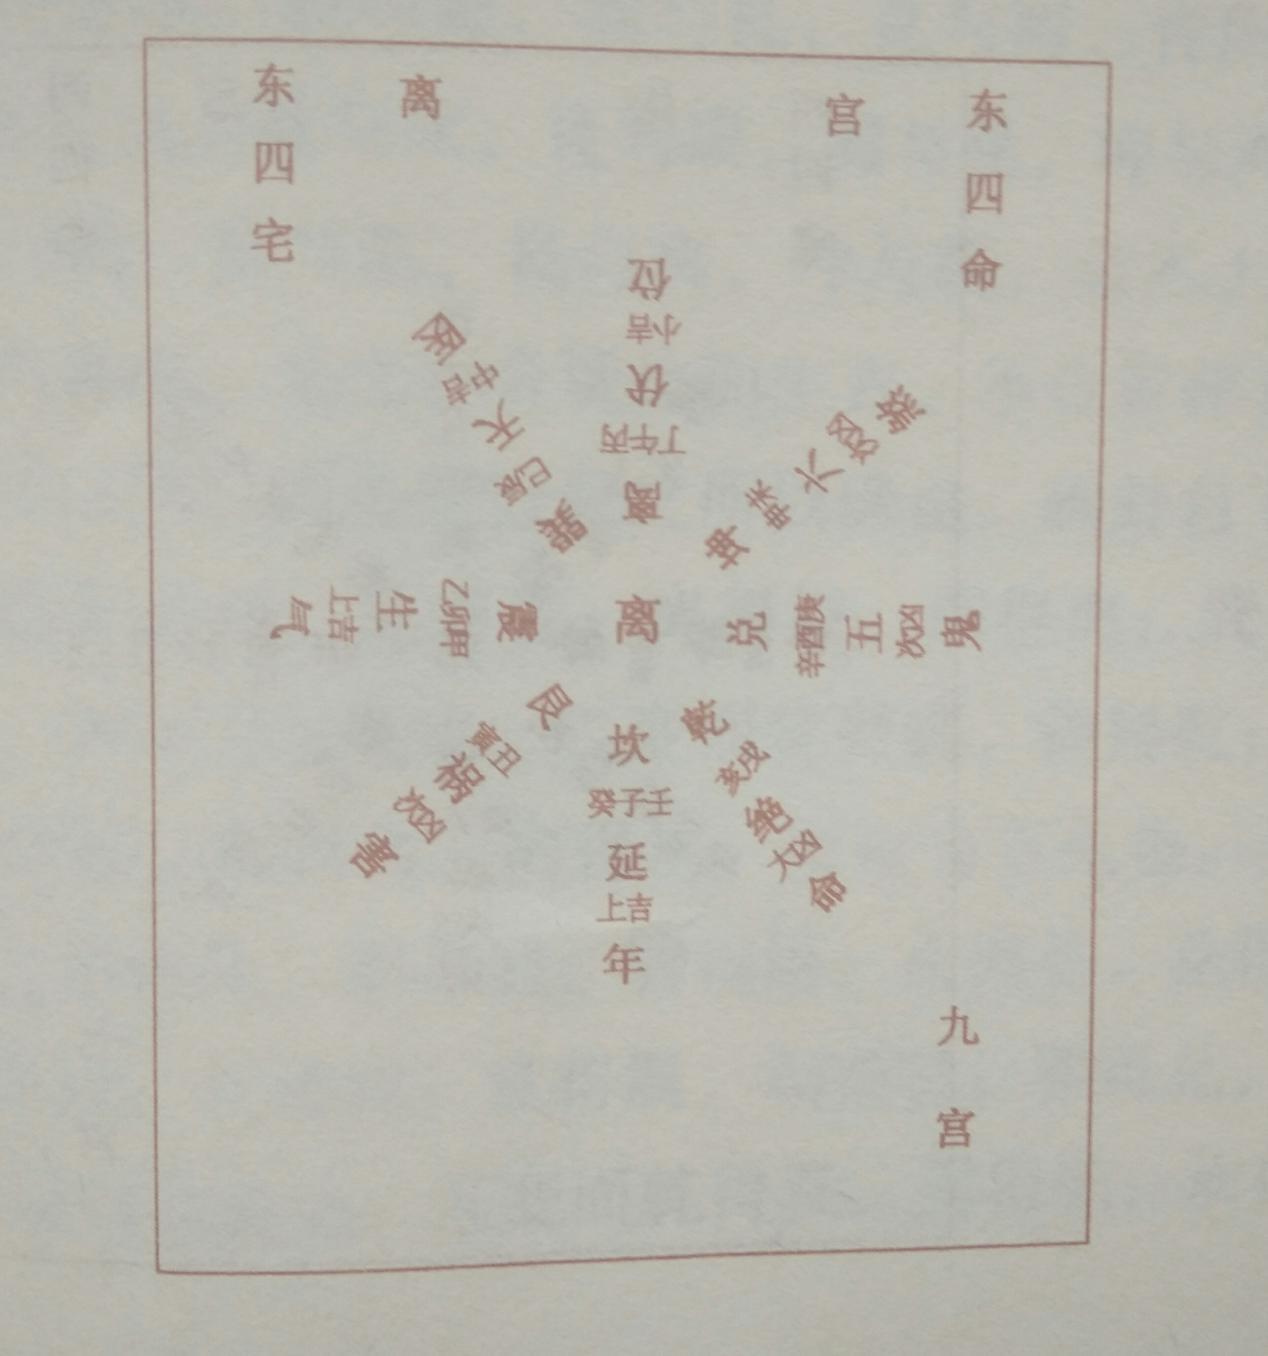 东四宅
离宫
东四命
离
离
丙午丁
伏
小吉
位
坤
未申
六
次凶
煞
兑
庚酉辛
五
次凶
鬼
乾
戌亥
绝
大凶
命
坎
壬子癸
延
上吉
年
艮
丑寅
祸
次凶
害
震
甲卯乙
生
上吉
气
巽
辰巳
天
中吉
医
九宫